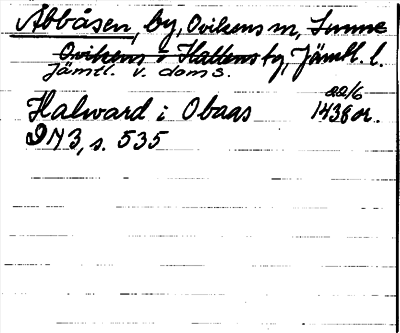 Abbåsen, by, Ovikens sn, Sunne
Ovikens o Hallens tg, Jämtl. l.
Jämtl. v. doms.
Halward i Obaas 22/6 1438 or.
DN 3, s. 535